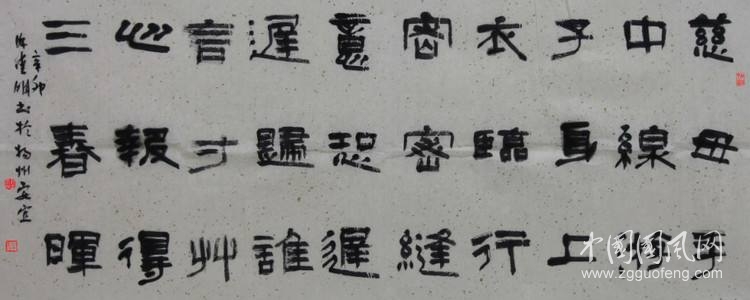 慈母手
中線
子身上
衣臨行
密密縫
意恐遲
遲歸誰
言寸艸
心報得
三春暉
辛卯
书於揚州安宜
中国国风网
www.zgguofeng.com